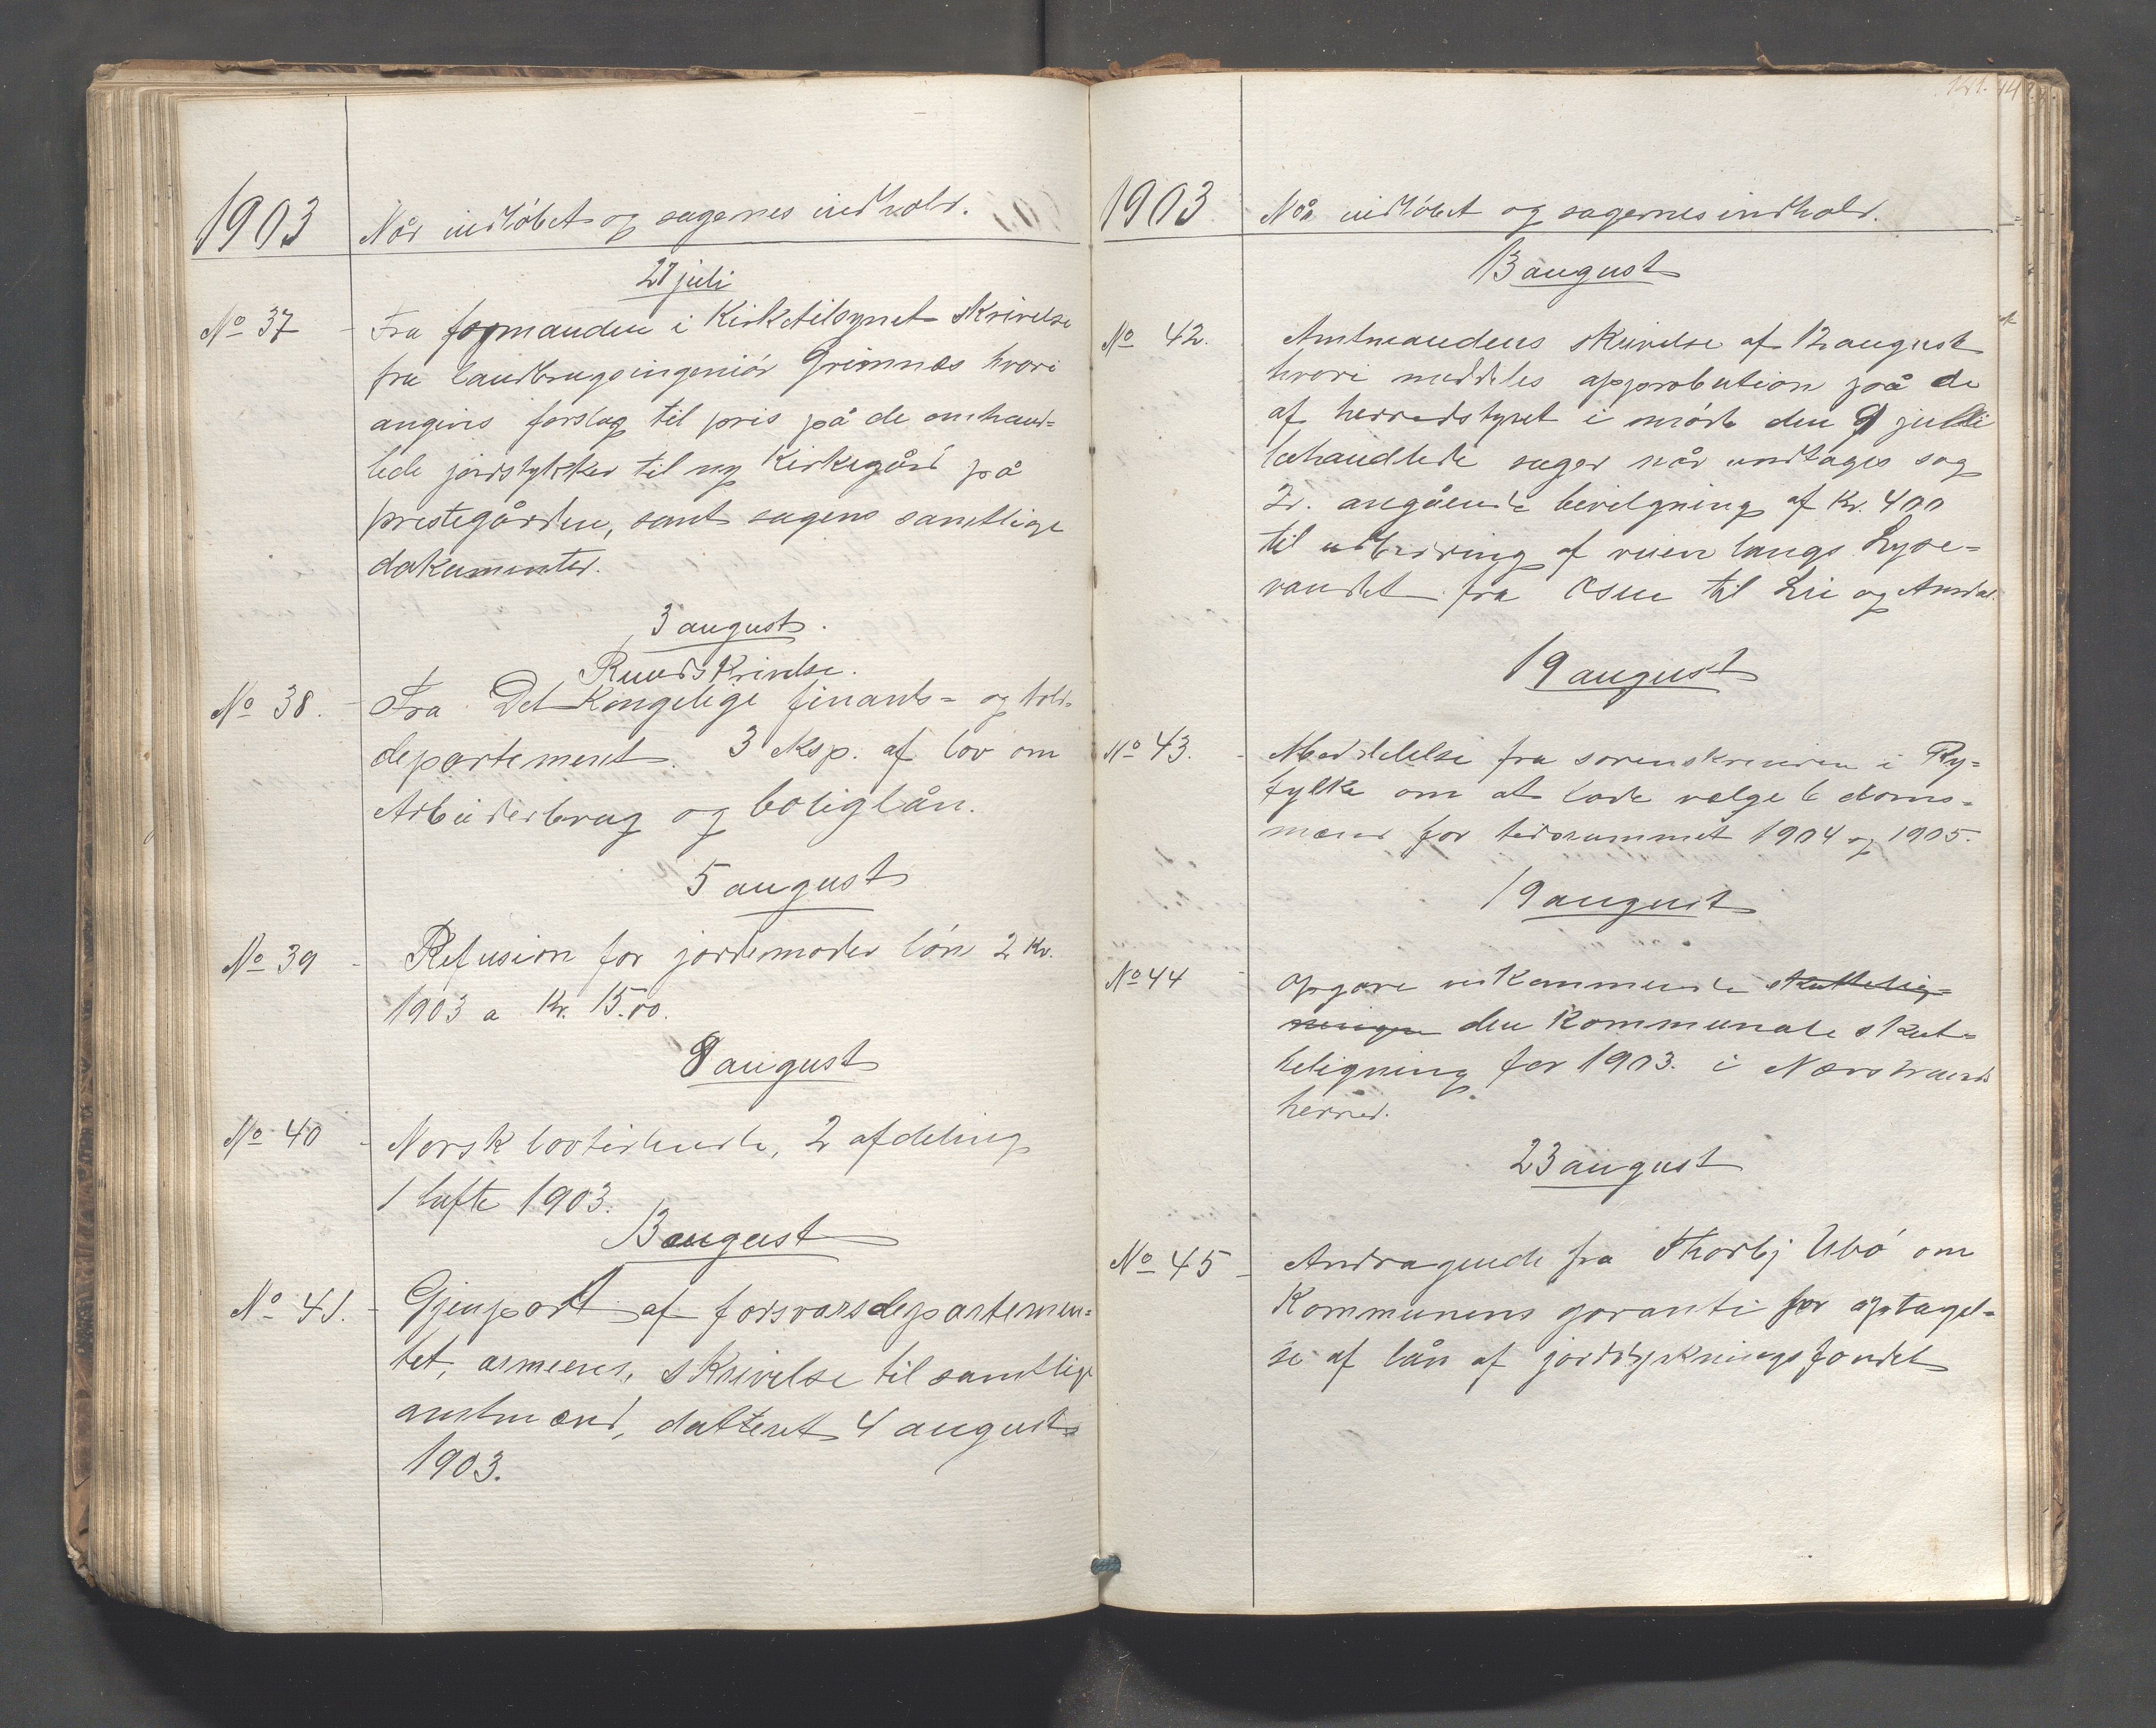 1903
Når indløbet og sagernes indhold.
27 juli
No 37 - Fra formanden i Kirketilsynet skrivelse
fra landbrugsingeniør Grimnæs hvori
angives forslag til pris på de omhand=
lede jordstykker til ny Kirkegård på
prestegården, samt sagens samtlige
dokumenter.
3 august.
Rundskrivelse.
No 38. - Fra Det Kongelige finants= og told=
departement. 3 eksp. af lov om
Arbeiderbrug og boliglån.
5 august
No 39 - Refusion for jordemoder løn 2 kv.
1903 a Kr. 15.00.
8 august
No 40 - Norsk lovtidende, 2 afdeling
1 hefte 1903.
13 august
No 41. - Gjenpart af forsvarsdepartemen=
tet, armeens, skrivelse til samtlige
amtmænd, datteret 4 august
1903.
141.
1903
Når indløbet og sagernes indhold.
13 august
No 42. Amtmandens skrivelse af 12 august
hvori meddeles approbation på de
af herredstyret i møde den 9 juli
behandlede sager når undtages sag
2. angående bevilgning af Kr. 400
til udbedring af veien langs Lyse=
vandet fra Osen til Lie og Amdal.
19 august
No 43. - Meddelelse fra sorenskriveren i Ry=
fylke om at lade vælge 6 doms=
mænd for tidsrummet 1904 og 1905.
19 august
No 44 - Opgave vedkommende skattelig=
ningen den Kommunale skat=
teligning for 1903. i Nærstrand
herred.
23 august
No 45 - Andragende fra Thorbj Ubø om
Kommunens garanti for optagel=
se af lån af jorddyrkningsfondet